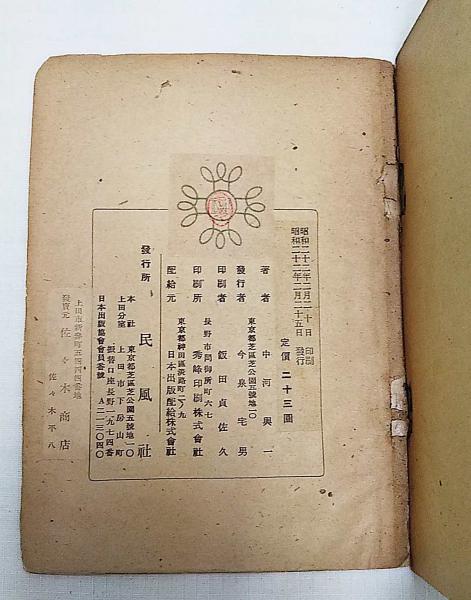 昭和二十二年二月二十日 印刷
昭和二十二年二月二十五日 發行
定價 二十三圓
著者 中河與一
東京都芝區芝公園五號地一〇
發行者 今泉宅男
印刷者 飯田貞佐久
長野市問御所町六七
印刷所 秀峰印刷株式會社
東京都神田區淡路町二ノ九
配給元 日本出版配給株式會社
發行所 民風社
本社 東京都芝區芝公園五號地一〇
上田分室 上田市下房山町
振替口座長野一九七四番
日本出版協會會員番號 A二一三〇四〇
上田市新參町五四四四番地
發賣元 佐々木商店
佐々木平八